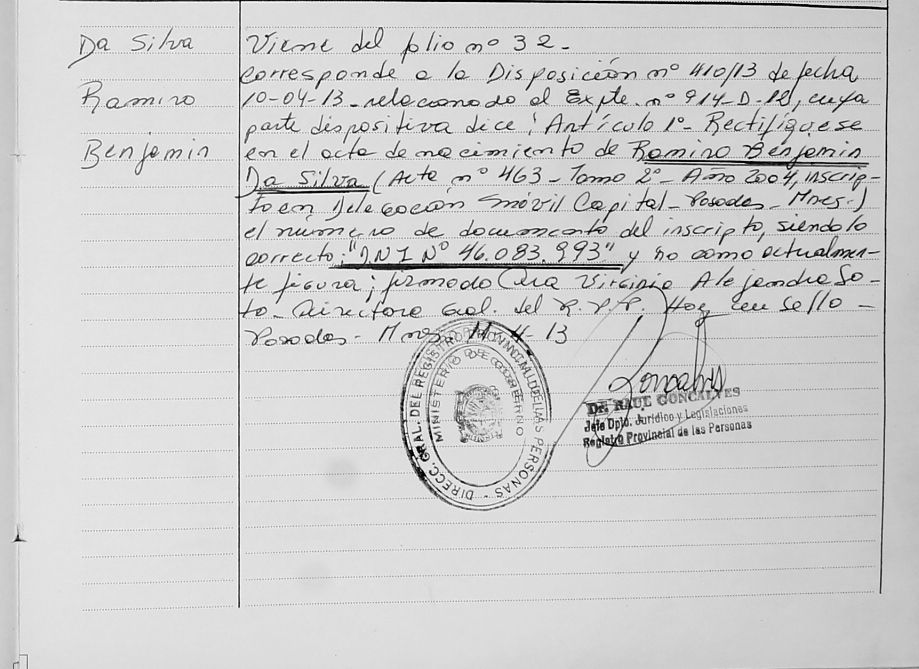 Da Silva
Ramiro
Benjamin
Viene del folio nº 32-
corresponde a la Disposición nº 410/13 de fecha
10-04-13- relacionado al Expte. nº 914-D-12, cuya
parte dispositiva dice: Artículo 1º- Rectifíquese
en el acta de nacimiento de Ramiro Benjamin
Da Silva (Acta nº 463- Tomo 2º- Año 2004, inscrip-
to en Delegación Móvil Capital- Posadas- Mnes.)
el número de documento del inscripto, siendo lo
correcto: "D.N.I Nº 46.083.993" y no como actualmen-
te figura; firmado Dra Virginia Alejandra So-
to- Directora Gral. del R.P.P. Hay un sello-
Posadas- Mnes, 11-4-13
DIRECC. GRAL. DEL REGISTRO PROVINCIAL DE LAS PERSONAS
MINISTERIO DE GOBIERNO
Goncalves
Dr. RAUL GONCALVES
Jefe Dpto. Jurídico y Legislaciones
Registro Provincial de las Personas